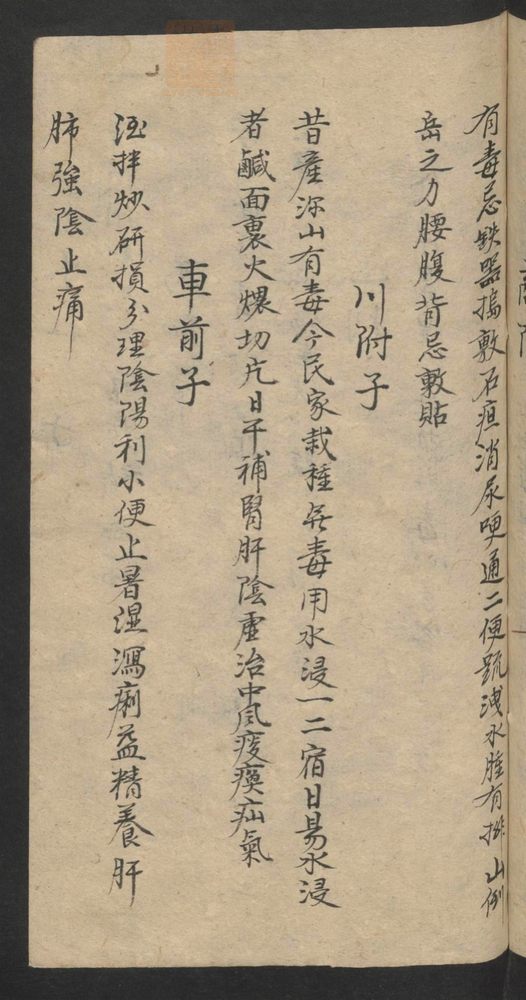 有毒忌鉄器搗敷石疽消尿哽通二便疏洩水腫有排山倒
岳之力腰腹背忌敷貼
川附子
昔産深山有毒今民家栽種無毒用水浸一二宿日易水浸
者鹹面裏火煨切片日干補腎肝陰虛治中風痠瘓疝氣
車前子
酒拌炒研損分理陰陽利小便止暑湿瀉痢益精養肝
肺強陰止痛